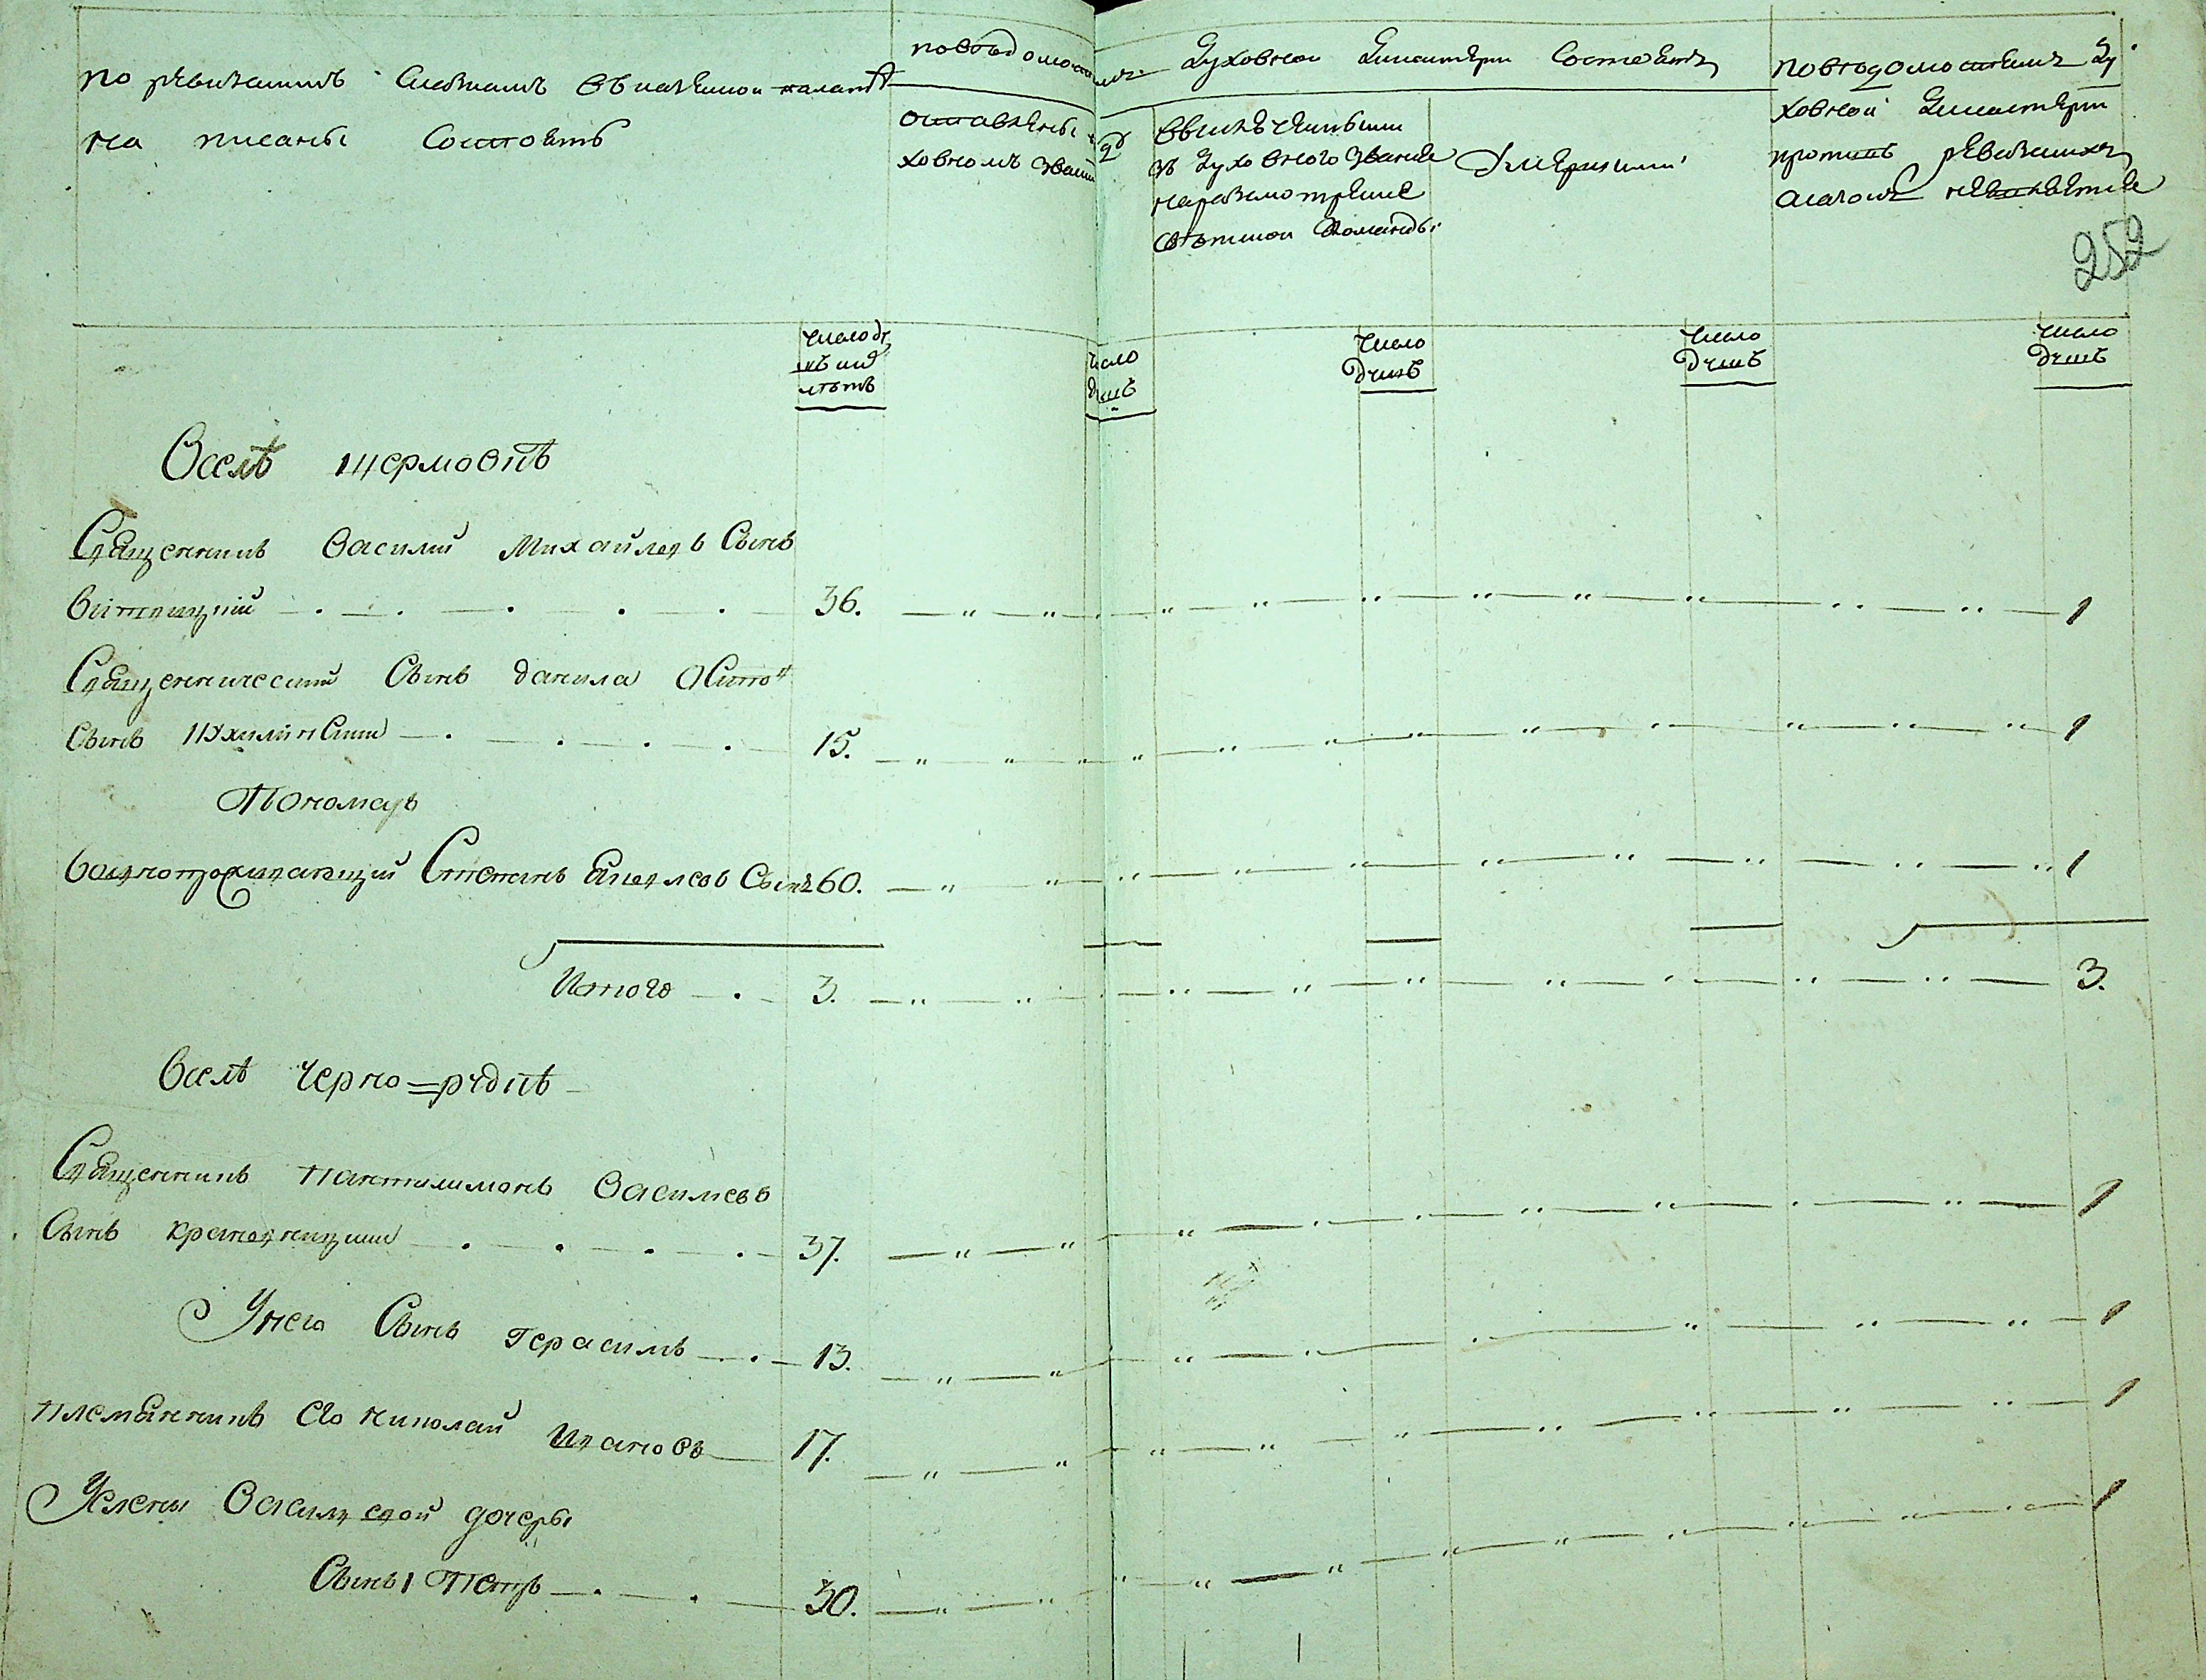 по ревизскимъ сказкамъ въ казенной палатѣ
на писаны состоитъ
по вѣдомостямъ Духовной Дикастерии состоитъ
оставлены въ ду
ховномъ звании
въ духовного звания
на разсмотрение
свѣтской команды
умершими
по вѣдомостямъ Ду
ховной Дикастерии
противъ ревизскихъ
сказокъ
252
число ду
шъ и ихъ
лѣтъ
число
душъ
число
душъ
число
душъ
число
душъ
Вселѣ
Священникъ Василий Михайловъ Сынъ
36. 1
Священнический Сынъ данила Осипов
Сынъ 15. 1
Пономарь
Степанъ Сынъ 60. 1
Итого 3. 3.
Вселѣ Черно=рудкѣ
Священникъ Пантилимонъ Васильевъ
Сынъ 37. 1
Унего Сынъ Герасимъ 13. 1
племянникъ его николай Ивановъ 17. 1
Уелены Василевой дочеры
Сынъ 1 Петръ 30. 1